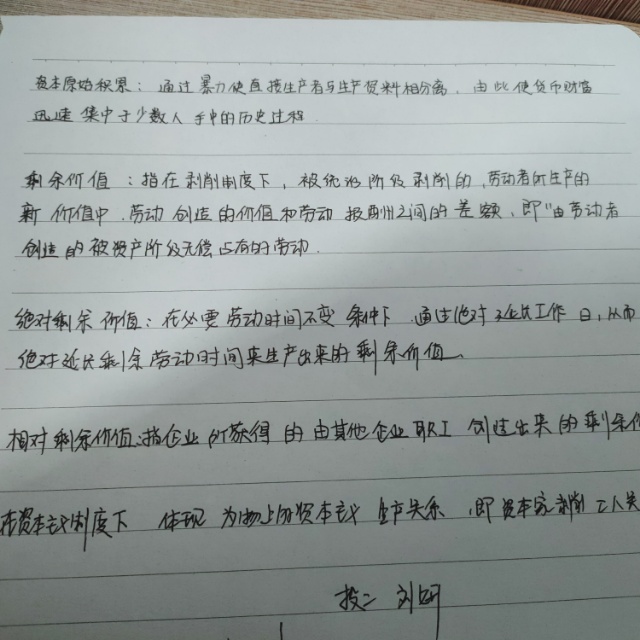 资本原始积累：通过暴力使直接生产者与生产资料相分离，由此使货币财富
迅速集中于少数人手中的历史过程
剩余价值：指在剥削制度下，被统治阶级剥削的，劳动者所生产的
新价值中，劳动创造的价值和劳动报酬之间的差额，即"由劳动者
创造的被资产阶级无偿占有的劳动.
绝对剩余价值：在必要劳动时间不变条件下 通过绝对延长工作日，从而
绝对延长剩余劳动时间来生产出来的剩余价值。
相对剩余价值：指企业所获得的由其他企业职工创造出来的剩余价
在资本主义制度下 体现为物上的资本主义生产关系，即资本家剥削工人关
刘